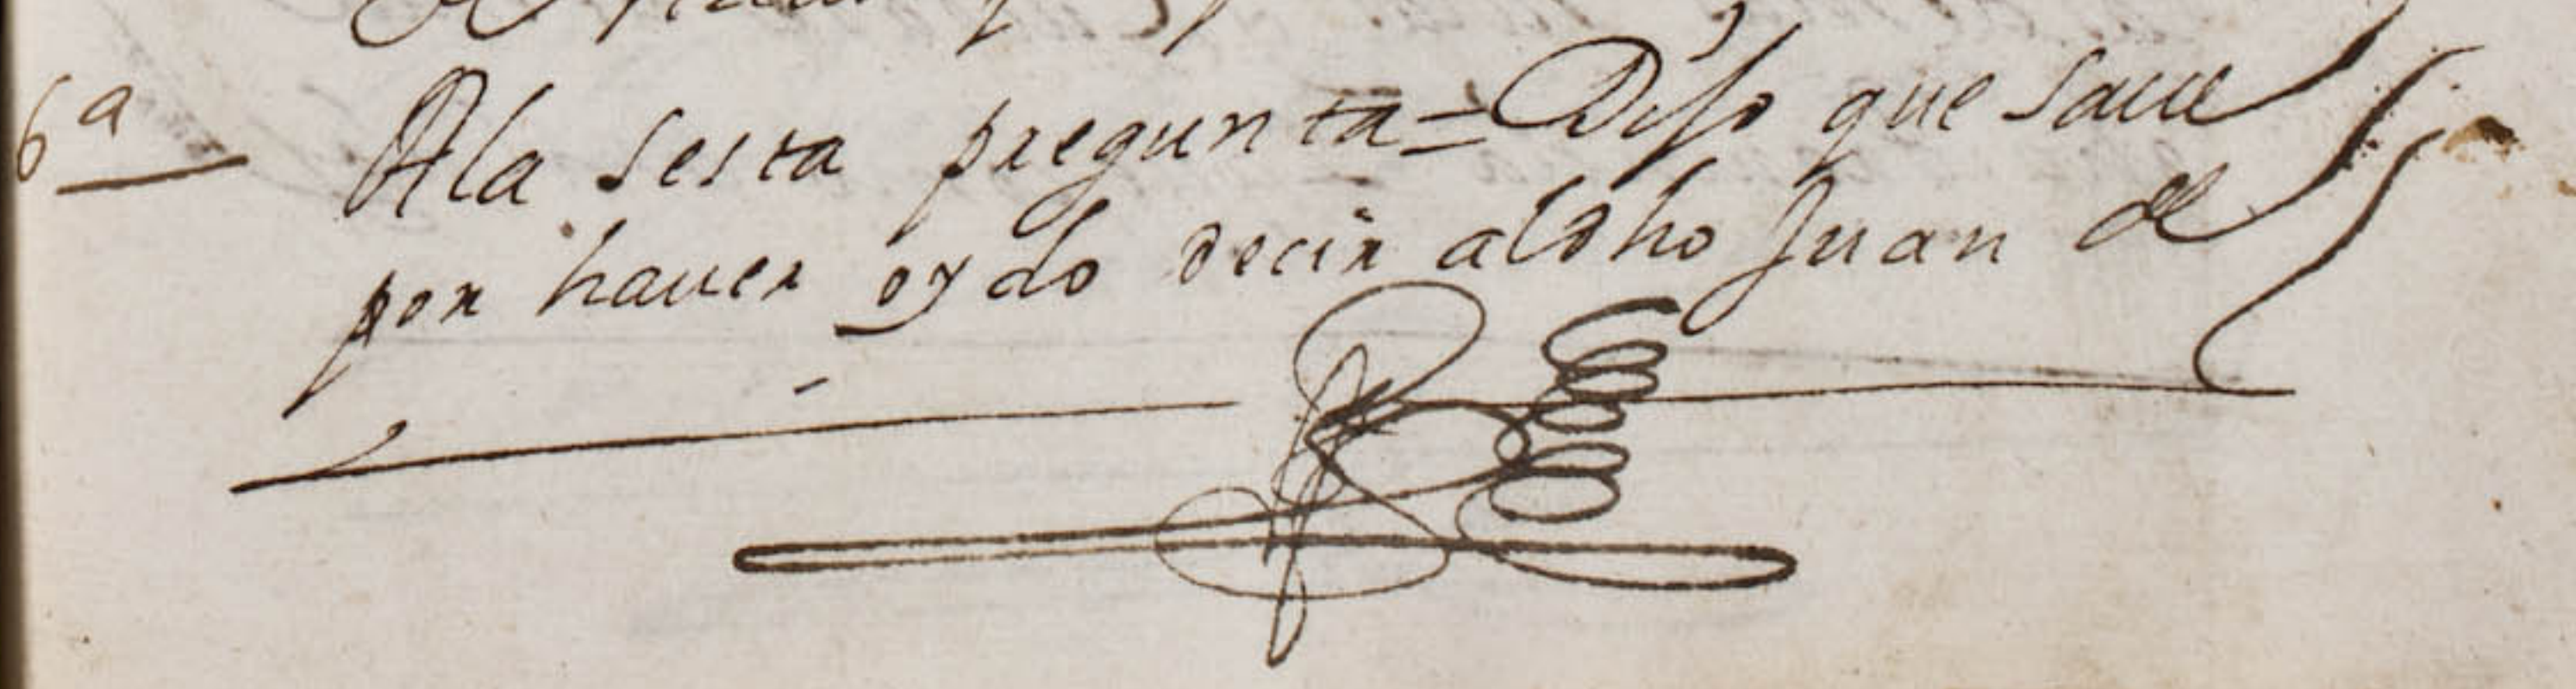 6a
Ala sesta pregunta = Dijo que saue
por hauer oydo decir aldho Juan de